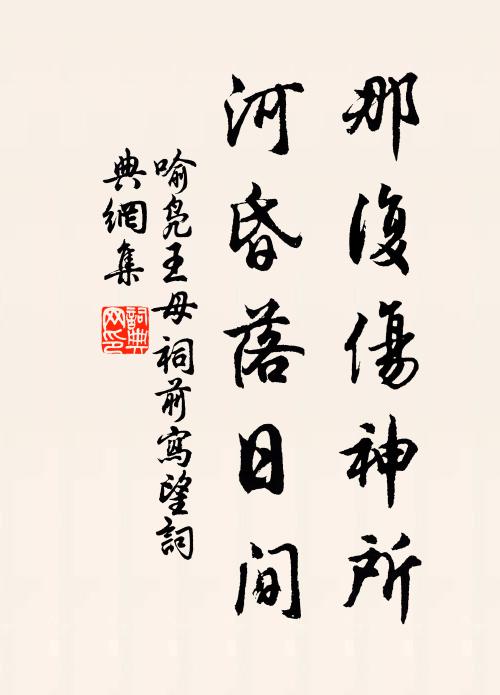 那復傷神所
河昏落日间
喻凫王母祠前寫望詞
典網集
詞典
网印